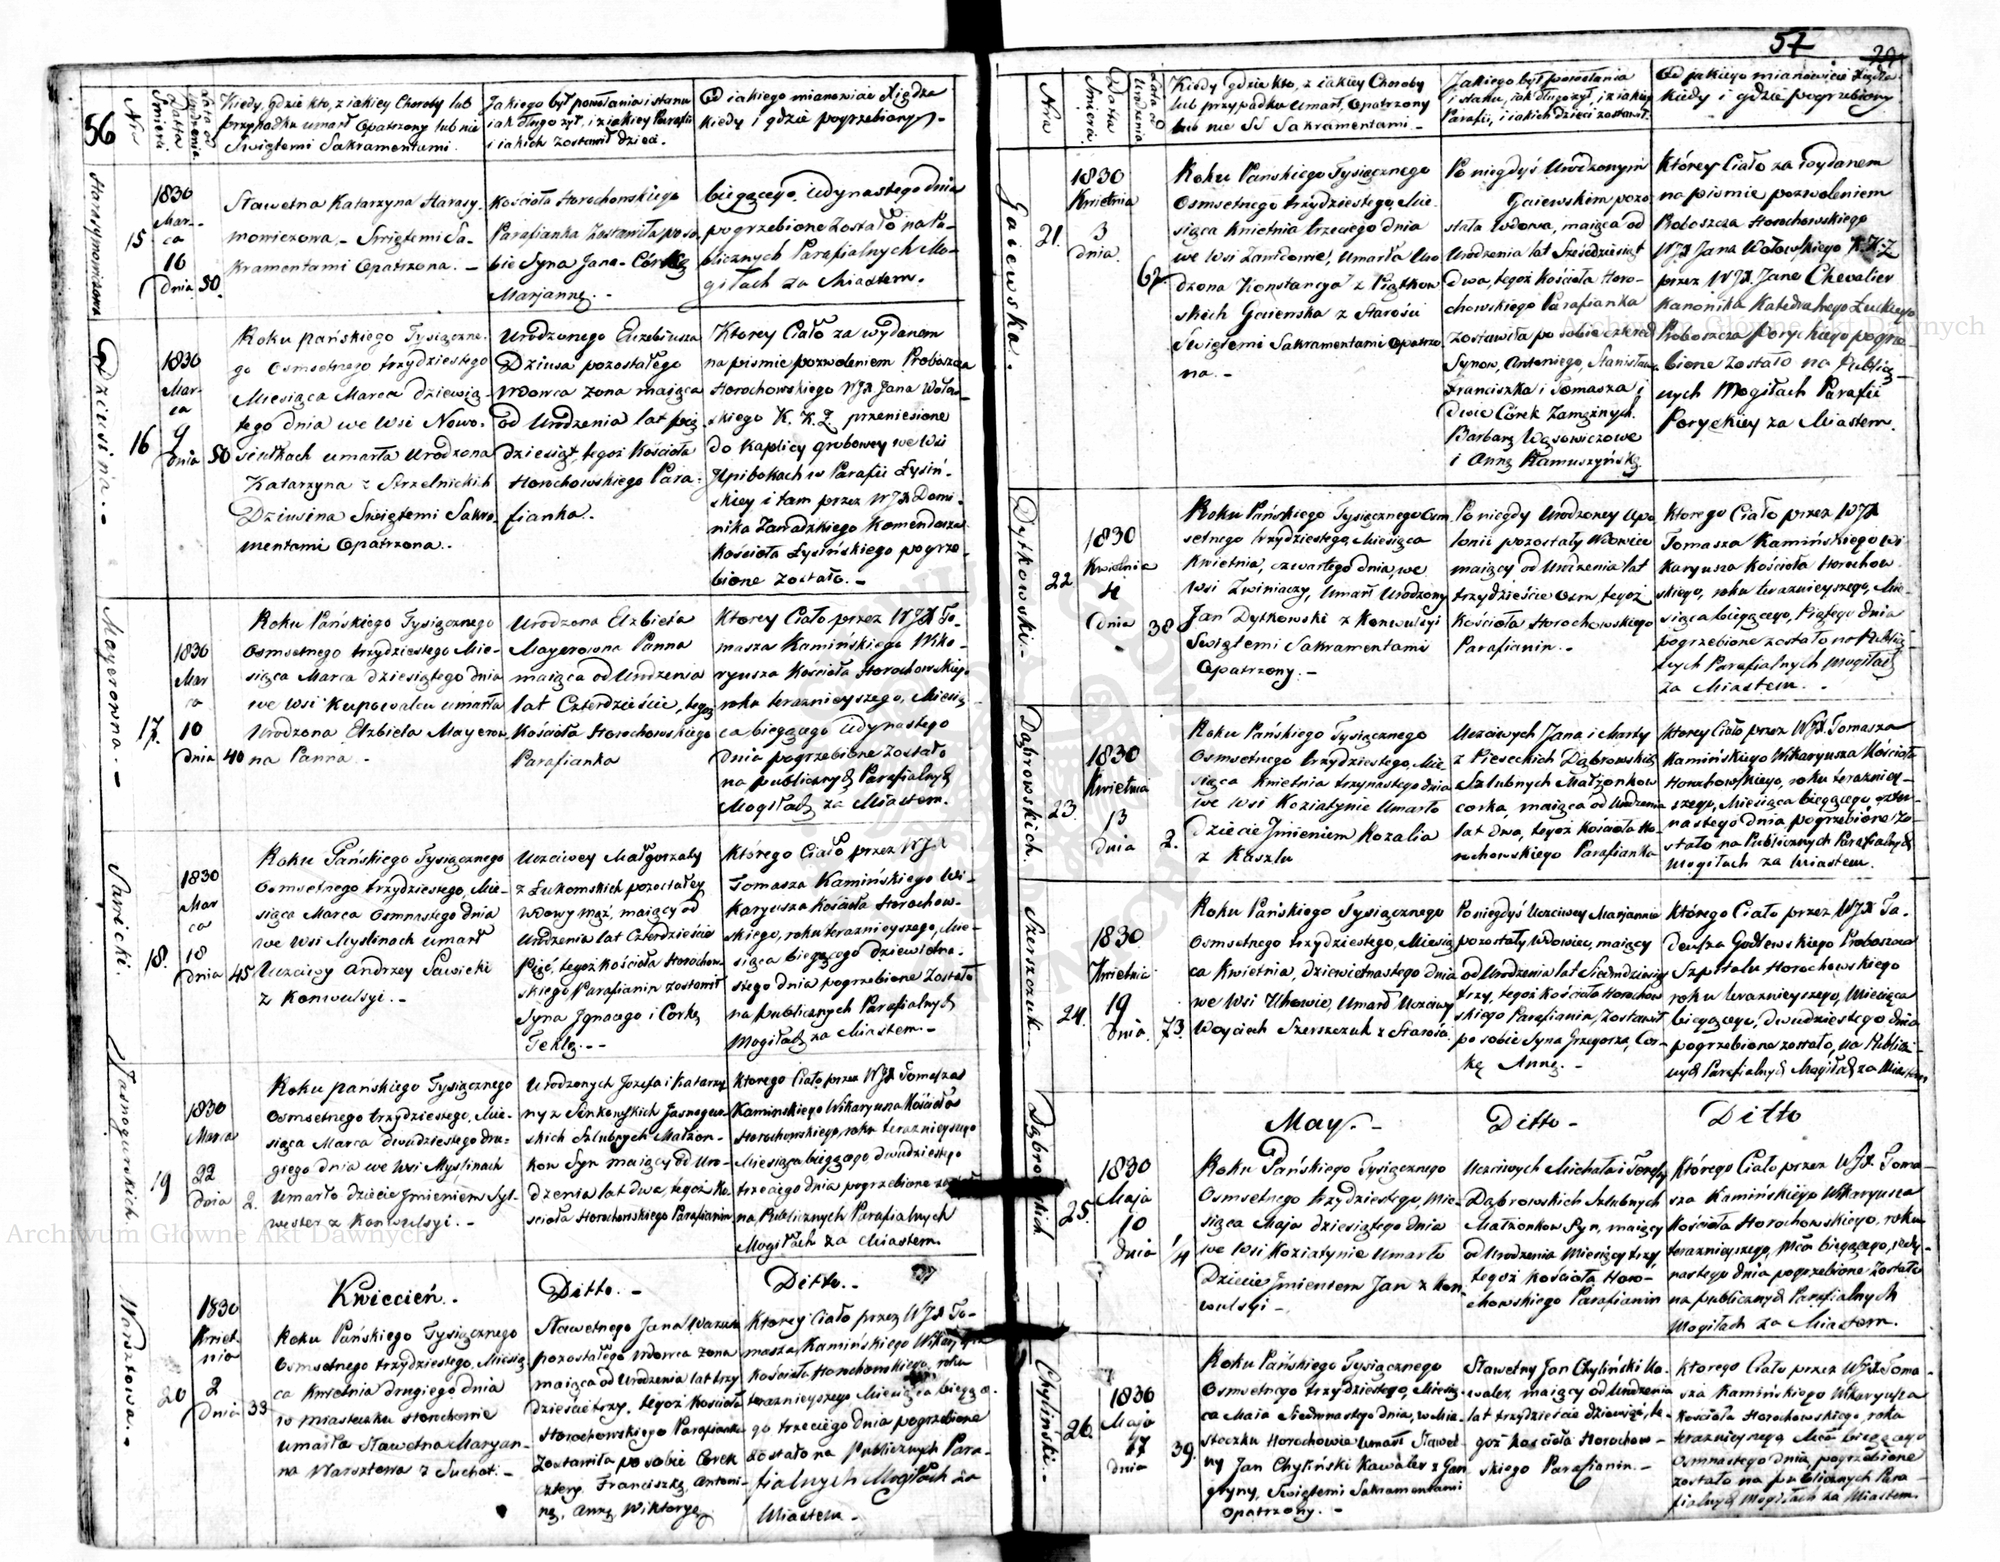 56
Nr
Data Śmierci
Lata od Urodzenia
Kiedy, gdzie kto, z iakiey Choroby lub
przypadku umarł Opatrzony lub nie
Świętemi Sakramentami.
Jakiego był powołania i stanu
iak długo żył, i z iakiey Parafii
i iakich zostawił dzieci.
Od iakiego mianowicie Xiędza
kiedy i gdzie pogrzebiony.
15
1830
Mar-
ca
16
dnia
50.
Sławetna Katarzyna Harasy-
mowiczowa. Świętemi Sa-
kramentami Opatrzona. -
Kościoła Horochowskiego
Parafianka Zostawiła po so-
bie Syna Jana - Córkę
Marjannę. -
biegącego, iedynastego dnia
pogrzebione Zostało na Pu-
blicznych Parafialnych Mo-
giłach za Miastem.
Dziusina. -
16
1830
Mar-
ca
9
dnia
50
Roku pańskiego Tysiączne-
go Osmsetnego trzydziestego
Miesiąca Marca dziewią-
tego dnia we Wsi Nowo-
siułkach umarła Urodzona
Katarzyna z Strzelnickich
Dziusina Świętemi Sakra-
mentami Opatrzona. -
Urodzonego Euzebiusza
Dziusa pozostałego
Wdowca żona maiąca
od Urodzenia lat pięć-
dziesiąt, tegoż Kościoła
Horochowskiego Para-
fianka. -
Ktorey Ciało za wydanem
na piśmie pozwoleniem Proboszcza
Horochowskiego WJX Jana Woło-
skiego K. K. Ł przeniesione
do Kaplicy grobowey we Wsi
w Parafii Łysiń-
skiey i tam przez WJX Domi-
nika Zawadzkiego Komendarza
Kościoła Łysińskiego pogrze-
bione zostało. -
Mayerowna. -
17.
1830
Mar
ca
10
dnia
40
Roku Pańskiego Tysiącznego
Osmsetnego trzydziestego Mie-
siąca Marca dziesiątego dnia
we Wsi Kupowalcu umarła
Urodzona Elżbieta Mayerow-
na Panna -
Urodzona Elżbieta
Mayerowna Panna
maiąca od Urodzenia
lat Czterdzieście, tegoż
Kościoła Horochowskiego
Parafianka
Ktorey Ciało przez WJX To-
masza Kamińskiego Wika-
ryusza Kościoła Horochowskiego
roku teraznieyszego, Miesią-
ca biegącego iedynastego
dnia pogrzebione Zostało
na publicznych Parafialnych
Mogiłach za Miastem.
Sawicki.
18.
1830
Mar
ca
18
dnia
45
Roku Pańskiego Tysiącznego
Osmsetnego trzydziestego, Mie-
siąca Marca Osmnastego dnia
we Wsi Myslinach umarł
Uczciwy Andrzey Sawicki
z Konwulsyi. -
Uczciwey Małgorzaty
z Łukomskich pozostałey
wdowy mąż, maiący od
Urodzenia lat Czterdzieście
Pięć, tegoż Kościoła Horochow-
skiego Parafianin zostawił
Syna Ignacego i Corkę
Teklę. -
Którego Ciało przez WJX
Tomasza Kamińskiego Wi-
karyusza Kościoła Horochow-
skiego, roku teraznieyszego, Mie-
siąca biegącego dziewietna-
stego dnia pogrzebione Zostało
na publicznych Parafialnych
Mogiłach za Miastem. -
Jasnogurskich.
19
1830
Marca
22
dnia
2.
Roku pańskiego Tysiącznego
Osmsetnego trzydziestego, Mie-
siąca Marca dwudziestego dru-
giego dnia we Wsi Myslinach
umarło dziecie Jmieniem Syl-
wester z Konwulsyi. -
Urodzonych Jozefa i Katarzy-
ny z Sinkowskich Jasnogur-
skich Szlubnych Małżon-
kow Syn maiący od Uro-
dzenia lat dwa, tegoż Ko-
scioła Horochowskiego Parafianin
Ktorego Ciało przez WJX Tomasza
Kaminskiego Wikaryusza Kościoła
Horochowskiego, roku teraznieyszego
Miesiąca biegącego dwudziestego
trzeciego dnia pogrzebione zostało
na Publicznych Parafialnych
Mogiłach za Miastem.
Kwiecień. -
Ditto. -
Ditto. -
Warsztowa. -
20
1830
Kwiet-
nia
2
dnia
33
Roku Pańskiego Tysiącznego
Osmsetnego trzydziestego, Miesią-
ca Kwietnia drugiego dnia
w miasteczku Horochowie
umarła Sławetna Maryan-
na Warsztowa z Suchot. -
Sławetnego Jana
pozostałego Wdowca żona
maiąca od Urodzenia lat trzy-
dzieście trzy, tegoż Kościoła
Horochowskiego Parafianka
Zostawiła po sobie Corek
cztery. Franciszkę, Antoni-
nę, Annę Wiktoryę
Ktorey Ciało przez WJX To-
masza Kamińskiego Wikaryusza
Kościoła Horochowskiego roku
teraznieyszego Miesiąca biegące-
go trzeciego dnia pogrzebione
Zostało na Publicznych Para-
fialnych Mogiłach za
Miastem -
57
Nro
Data Śmierci
Lata od Urodzenia
Kiedy Gdzie kto, z iakiey Choroby
lub przypadku Umarł, Opatrzony
lub nie SS Sakramentami -
Jakiego był powołania
i stanu, iak długo żył, i z iakiey
Parafii, i iakich dzieci zostawił.
Od jakiego mianowicie Xiędza
kiedy i gdzie pogrzebiony
Gaiewska.
21.
1830
Kwietnia
3
dnia.
62
Roku Pańskiego Tysiącznego
Osmsetnego trzydziestego, Mie-
siąca Kwietnia trzeciego dnia
we Wsi Zawidowie, Umarła Uro-
dzona Konstancya z Piątkow-
skich Gaiewska z Starości
Świętemi Sakramentami Opatrzo-
na. -
Po niegdyś Urodzonym
Gaiewskim pozo-
stała Wdowa, maiąca od
Urodzenia lat Sześćdziesiąt
dwa, tegoż Kościoła Horo-
chowskiego Parafianka
Zostawiła po sobie czterech
Synow, Antoniego, Stanisława
Franciszka i Tomasza i
dwie Córek Zamężnych
Barbarę Wąsowiczowe
i Annę
Którey Ciało za wydanem
na piśmie pozwoleniem
Proboszcza Horochowskiego
WJX Jana Wołoskiego K. K. Ł
przez WJX. Jane Chevalier
Kanonika Katedralnego Łuckiego
Proboszcza Poryckiego pogrze-
bione Zostało na Publicz-
nych Mogiłach Parafii
Poryckiey za Miastem.
Dytkowski. -
22
1830
Kwietnia
4
dnia
38
Roku Pańskiego Tysiącznego Osm-
setnego trzydziestego, Miesiąca
Kwietnia, czwartego dnia, we
Wsi Zwiniaczy, Umarł Urodzony
Jan Dytkowski z Konwulsyi
Świętemi Sakramentami
Opatrzony. -
Po niegdy Urodzoney Apo-
lonii pozostały Wdowiec
maiący od Urodzenia lat
trzydzieście Osm, tegoż
Kościoła Horochowskiego
Parafianin. -
Ktorego Ciało przez WJX
Tomasza Kamińskiego Wi-
karyusza Kościoła Horochow-
skiego, roku teraznieyszego, Mie-
siąca biegącego, Piątego dnia
pogrzebione zostało na Publicz-
nych Parafialnych Mogiłach
za Miastem. -
Dąbrowskich.
23.
1830
Kwietnia
13
dnia
2.
Roku Pańskiego Tysiącznego
Osmsetnego trzydziestego, Mie-
siąca Kwietnia trzynastego dnia
we Wsi Koziatynie Umarło
dziecie Jmieniem Rozalia
z Kaszlu
Uczciwych Jana i Marty
z Piescckich Dąbrowskich
Szlubnych Małżonkow
corka, maiąca od Urodzenia
lat dwa, tegoż Kościoła Ho-
rochowskiego Parafianka
Ktorey Ciało przez WJX. Tomasza
Kamińskiego Wikaryusza Kościoła
Horochowskiego, roku teraźniey-
szego, Miesiąca biegącego, czter-
nastego dnia pogrzebione Zo-
stało na Publicznych Parafialnych
Mogiłach za Miastem.
Szerszczuk. -
24.
1830
Kwietnia
19
dnia
73.
Roku Pańskiego Tysiącznego
Osmsetnego trzydziestego, Miesią-
ca Kwietnia, dziewietnastego dnia
we Wsi Uhowie, Umarł Uczciwy
Woyciech Szerszczuk z Starości
Po niegdyś Uczciwey Mariannie
pozostały Wdowiec, maiący
od Urodzenia lat Siedmdziesiąt
trzy, tegoż Kościoła Horochow-
skiego Parafianin, Zostawił
po sobie Syna Grzegorza, Cor-
kę Annę. -
Którego Ciało przez WJX Ta-
deusza Godlewskiego Proboszcza
Szpitalu Horochowskiego
roku teraznieyszego, Miesiąca
biegącego, dwudziestego dnia
pogrzebione zostało, na Publicz-
nych Parafialnych Mogiłach za Miastem
May. -
Ditto -
Ditto
Dąbrowskich
25.
1830
Maja
10
dnia
1/4
Roku Pańskiego Tysiącznego
Osmsetnego trzydziestego, Mie-
siąca Maja dziesiątego dnia
we Wsi Koziatynie Umarło
Dziecie Jmieniem Jan z Kon-
wulsyi -
Uczciwych Michała i Teresy
Dąbrowskich Szlubnych
Małżonkow Syn, maiący
od Urodzenia Miesięcy trzy,
tegoż Kościoła Horo-
chowskiego Parafianin
Którego Ciało przez WJX. Toma-
sza Kamińskiego Wikaryusza
Kościoła Horochowskiego, roku
teraznieyszego, Mca biegącego, iedy-
nastego dnia pogrzebione Zostało
na publicznych Parafialnych
Mogiłach za Miastem.
Chyliński. -
26.
1830
Maja
17
dnia
39.
Roku Pańskiego Tysiącznego
Osmsetnego trzydziestego, Miesią-
ca Maia Siedmnastego dnia, w Mia-
steczku Horochowie Umarł Sławet-
ny Jan Chyliński Kawaler z Gan-
gryny, Świętemi Sakramentami
Opatrzony. -
Sławetny Jan Chyliński Ka-
waler, maiący od Urodzenia
lat trzydzieście dziewięć, te-
goż Kościoła Horochow-
skiego Parafianin. -
Ktorego Ciało przez WJX Toma-
sza Kamińskiego Wikaryusza
Kościoła Horochowskiego, roku
teraznieyszego Mca biegącego
Osmnastego dnia, pogrzebione
zostało na publicznych Para-
fialnych Mogiłach za Miastem.
Archiwum Główne Akt Dawnych
Archiwum Główne Akt Dawnych